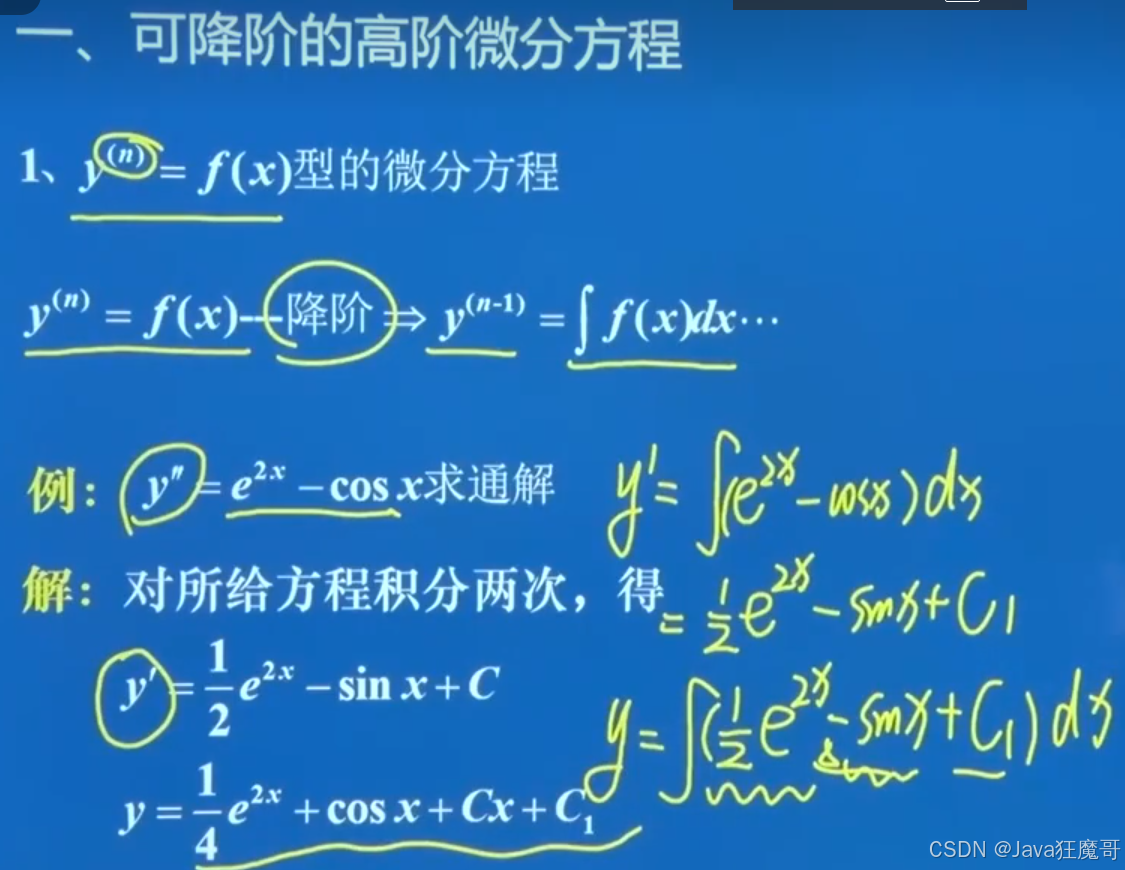 一、可降阶的高阶微分方程
1、y⁽ⁿ⁾ = f(x)型的微分方程
y⁽ⁿ⁾ = f(x)---降阶⇒ y⁽ⁿ⁻¹⁾ = ∫ f(x)dx…
例：y″ = e²ˣ − cos x求通解
y′ = ∫(e²ˣ − cosx)dx
解：对所给方程积分两次，得
= 1/2 e²ˣ − sinx + C₁
y′ = 1/2 e²ˣ − sin x + C
y = ∫(1/2 e²ˣ − sinx + C₁)dx
y = 1/4 e²ˣ + cos x + Cx + C₁
CSDN @Java狂魔哥